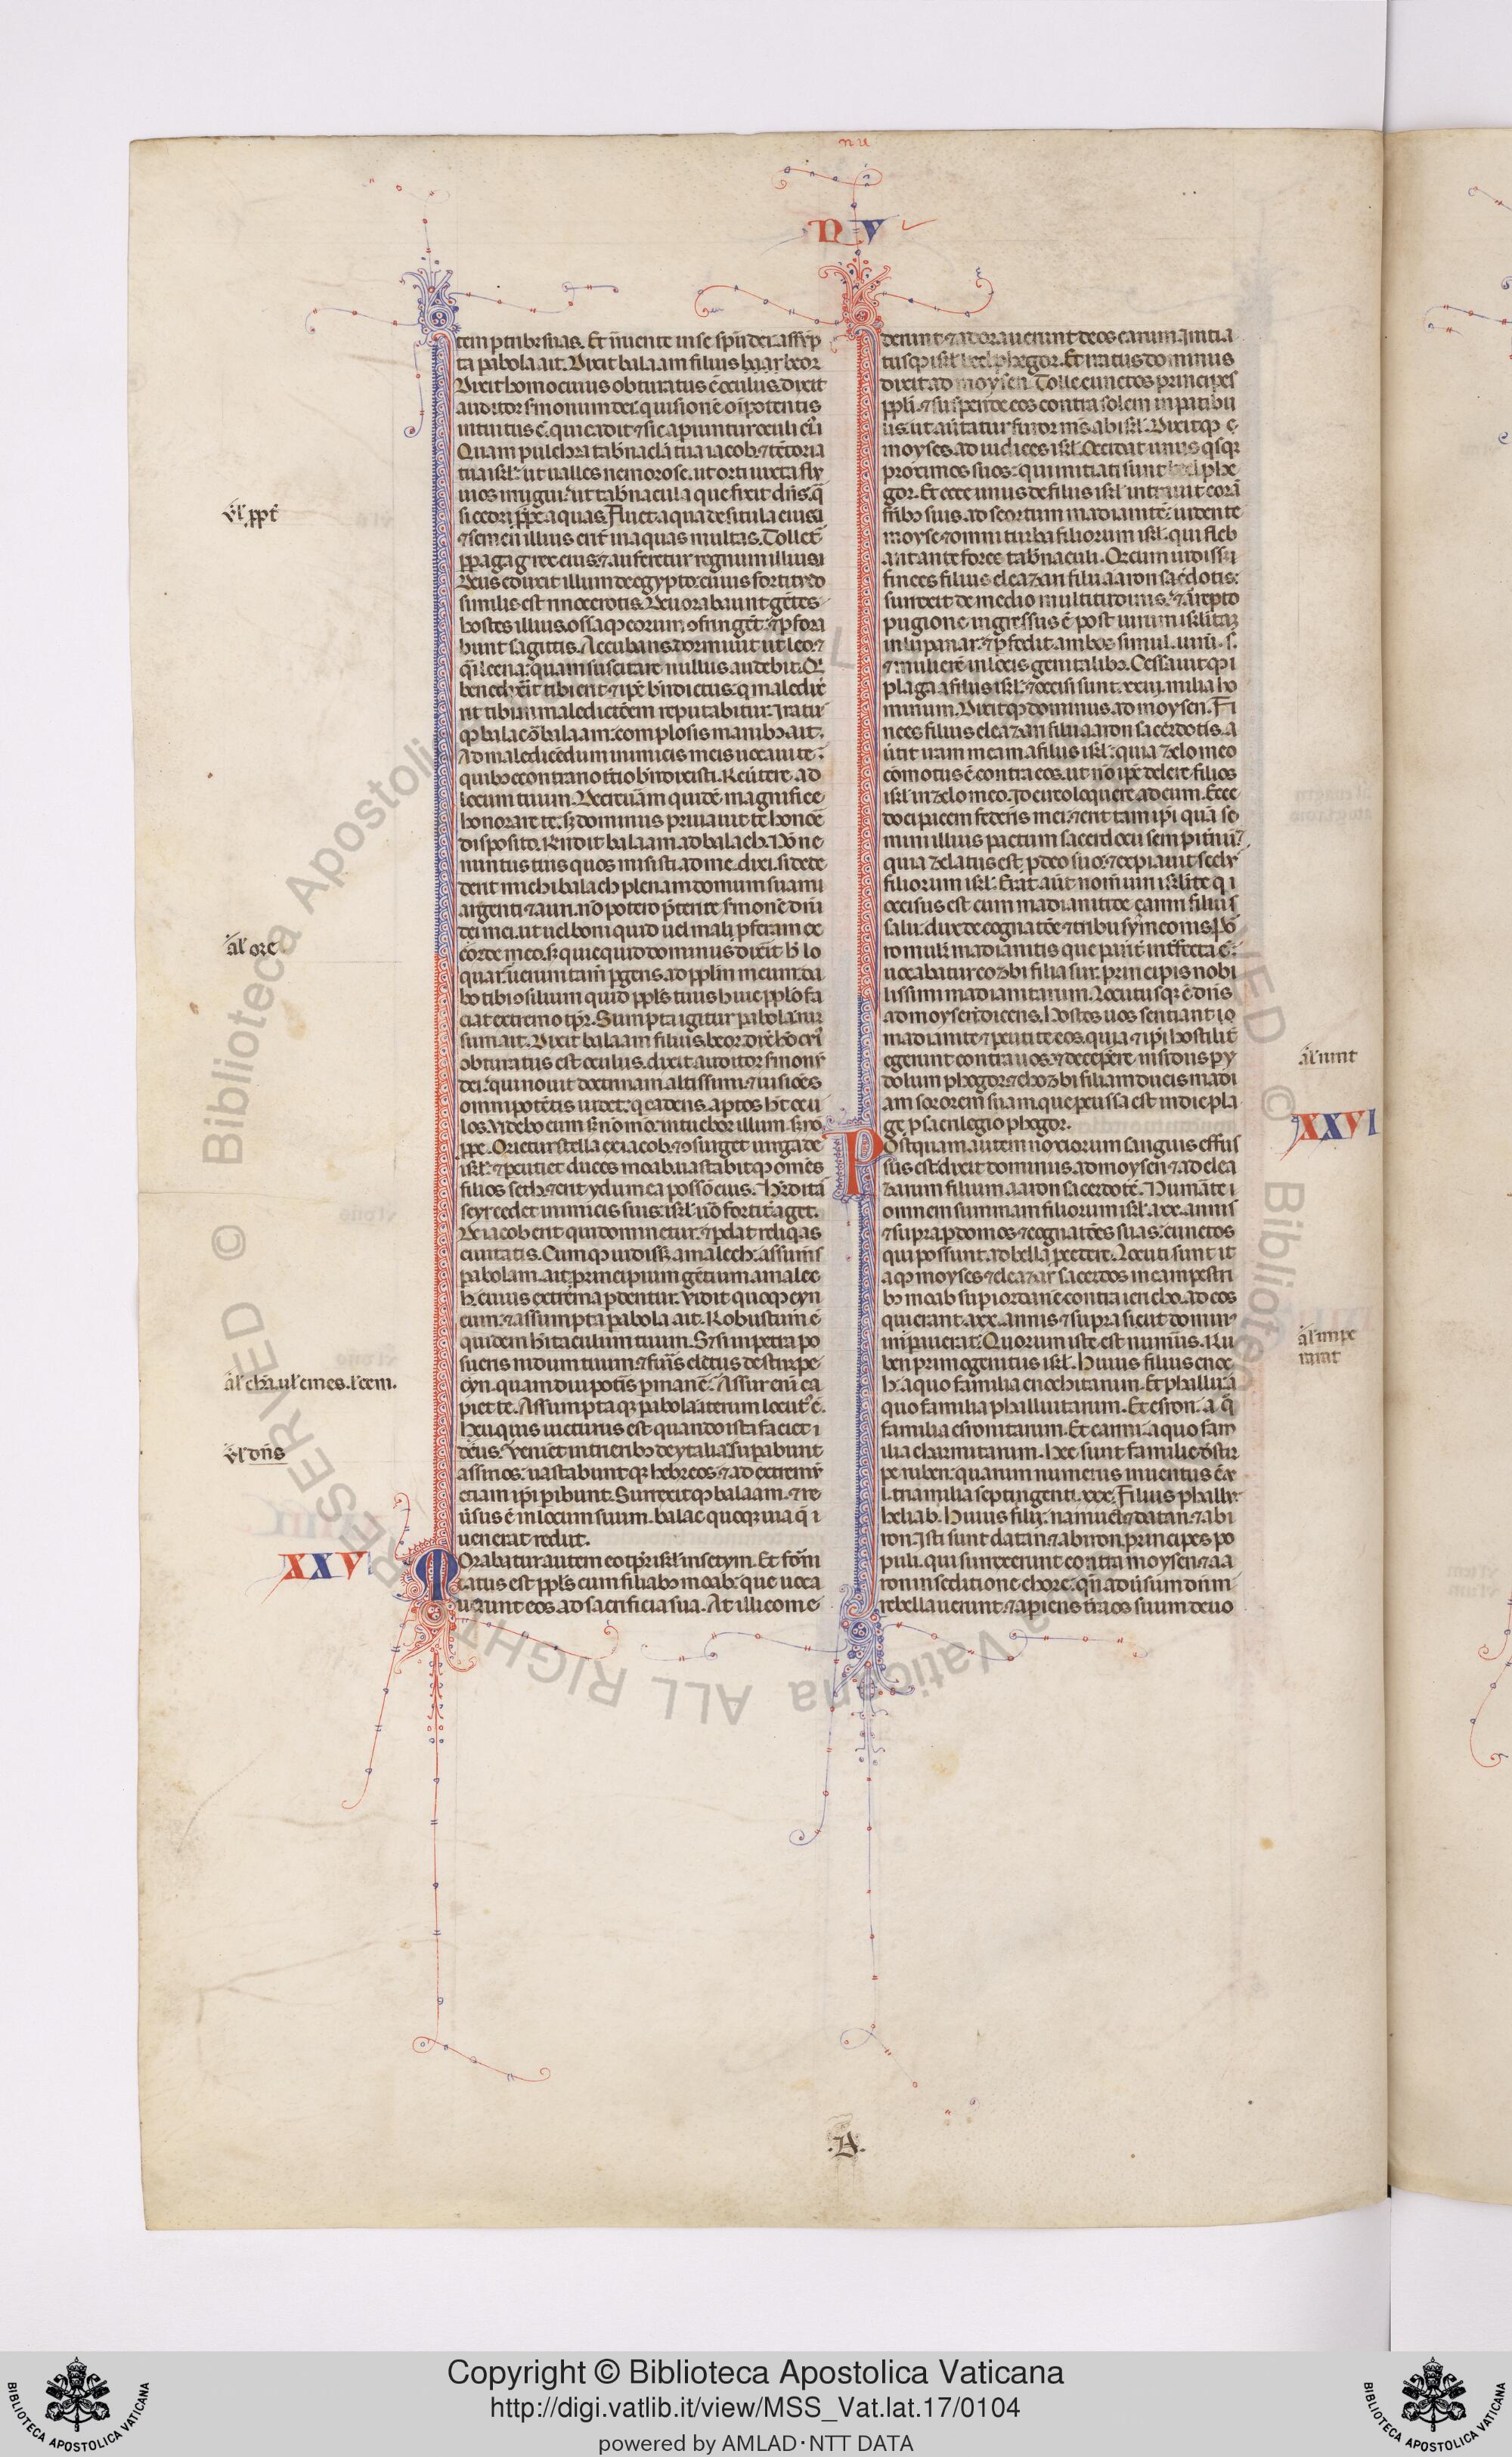 nu
N V
tem p tribꝫ suas. Et irruente in se spū dei. assūp
ta pabola ait. Dixit balaam filius baar beor
Dixit homo cuius obturatus ē oculus. dixit
auditor smonum dei. qui uisionē oīpotentis
intuitus ē. qui cadit ⁊ sic apiuntur oculi ei᷒
Quam pulchra tabnacla tua iacob. ⁊ tētoria
tua isrl. ut ualles nemorose. ut orti iuxta flu
uios irrigui. ut tabnacula que fixit dn̄s. q̄
si cedri ppe aquas. Fluet aqua de situla eius
⁊ semen illius erit in aquas multas. Tollet᷑
pp agag rex eius. ⁊ auferetur regnum illius
Deus eduxit illum de egypto. cuius fortitudo
similis est rinocerotis. Deuorabunt gētes
hostes illius. ossaqꝫ eorum ꝯfringēt. ⁊ pfora
bunt sagittis. Accubans dormiuit ut leo. ⁊
q̄i leena. quam suscitare nullus audebit. Q
benedix̄it tibi erit ⁊ ipē bn̄dictus. q maledix̄
rit tibi in maledictōem reputabitur. Iratus
qꝫ balac ꝯ̄ balaam. complosis manibꝫ ait.
Ad maledicēdum inimicis meis uocaui te.
quibꝫ econtrario t̄tio bn̄dixisti. Reūtere ad
locum tuum. Decreuam quidē magnifice
honorare te. sꝫ dominus priuauit te honore
disposito. Rn̄dit balaam ad balach. Nōne
nuntiis tuis quos misisti ad me. dixi. si dede
derit michi balach plenam domum suam
argenti ⁊ auri. nō potero p̄terire smonē dn̄i
dei mei. ut uel boni quid uel mali pferam ex
corde meo. sꝫ quicquid dominus dixit h̄ lo
quar. uerum tam̄ pgens ad pplm meum. da
bo tibi ꝯsilium quid ppls tuus huic pplo fa
ciat extremo tpr̄. Sumpta igitur pabola. rur
sum ait. Dixit balaam filius beor. dix̄ hō cui᷒
obturatus est oculus. dixit auditor smonū
dei. qui nouit doctrinam altissimi. ⁊ uisiões
omnipotētis uidet. q cadens aptos h̄t ocu
los. Videbo eum sꝫ nō mō. intuebor illum. sꝫ nō
ppe. Orietur stella ex iacob. ⁊ ꝯsurget uirga de
isrl. ⁊ peutiet duces moab. uastabitqꝫ omēs
filios seth. ⁊ erit ydumea possō eius. Hr̄ditas
seyr cedet inimicis suis. isrl uō fortit᷑ aget.
De iacob erit qui dominetur. ⁊ pdat reliqas
ciuitatis. Cumqꝫ uidissꝫ amalech. assumēs
pabolam. ait. principium gētium amalec
h. cuius extrema pdentur. Vidit quoqꝫ cyn
eum. ⁊ assumpta pabola ait. Robustum ē
quidem hītaculum tuum. Sꝫ si in petra po
sueris nidum tuum. ⁊ fuīs electus de stirpe
cyn. quamdiu potīs pmanē. Assur eni᷒ ca
piet te. Assumptaqꝫ pabola. iterum locut᷒ ē.
Heu quis uicturus est quando ista faciet
deus. Venient in trieribꝫ de ytalia. supabunt
assirios. uastabuntqꝫ hebreos. ⁊ ad extremū
etiam ipī pibunt. Surrexitqꝫ balaam. ⁊ re
uīsus ē in locum suum. balac quoqꝫ uia q̄
uenerat rediit.
Morabatur autem eo tpr̄ isrl in setym. Et forni
catus est ppls cum filiabꝫ moab. que uoca
uerunt eos ad sacrificia sua. At illi come
derunt ⁊ adorauerunt deos earum. Initia
tusqꝫ isrl beelphegor. Et iratus dominus
dixit ad moysen. Tolle cunctos principes
ppli ⁊ suspende eos contra solem in patibu
lis. ut auertatur furor m̄s ab isrl. Dixitqꝫ
moyses ad iudices isrl. Occidat unusqisqꝫ
proximos suos. qui initiati sunt beelphe
gor. Et ecce unus de filiis isrl intrauit corā
fr̄ibꝫ suis ad scortum madianitē. uidente
moyse ⁊ omni turba filiorum isrl. qui fleb
ant ante fores tabnaculi. Q cum uidissꝫ
finees filius eleazari filii aaron sacdotis.
surrexit de medio multitudinis. ⁊ arrepto
pugione ingressus ē post uirum isrlitam
in lupanar. ⁊ pfodit ambos simul. uirū. s.
⁊ mulierē in locis genitalibꝫ. Cessauitqꝫ
plaga a filiis isrl. ⁊ occisi sunt .xxiiij. milia ho
minum. Dixitqꝫ dominus ad moysen. Fi
nees filius eleazari filii aaron sacerdotis. a
uītit iram meam a filiis isrl. quia zelo meo
cōmotus ē contra eos. ut nō ipē delere filios
isrl in zelo meo. Idcirco loquere ad eum. Ecce
do ei pacem federis mei. ⁊ erit tam ipī quā se
mini illius pactum sacerdocii sempitnū.
quia zelatus est p deo suo. ⁊ expiauit scelꝰ
filiorum isrl. Erat aūt nomen isrlite qi
occisus est cum madianitide. zamri filius
salu. dux de cognatōe ⁊ tribu symeonis. Po
ro mulr̄ madianitis que parit᷑ intfecta ē.
uocabatur cozbi filia sur. principis nobi
lissimi madianitarum. Locutusqꝫ ē dn̄s
ad moysen dicens. Hostes uos sentiant
madianite ⁊ peutite eos. quia ⁊ ipī hostilit᷑
egerunt contra uos. ⁊ decepere insidiis p y
dolum phogor. ⁊ chozbi filiam ducis madi
am sororem suam. que peussa est in die pla
ge p sacrilegio phogor.
Postquam autem noxiorum sanguis effus
sus est. dixit dominus ad moysen ⁊ ad elea
zarum filium aaron sacerdotē. Numāte
omnem summam filiorum isrl. a .xx. annis
⁊ supra. p domos ⁊ cognatōes suas. cunctos
qui possunt ad bella pcedere. Locuti sunt it
aqꝫ moyses ⁊ eleazar sacerdos in campestri
bꝫ moab sup iordanē contra iericho. ad eos
qui erant a .xx. annis ⁊ supra. sicut domin᷒
impauerat. Quorum iste est numūs. Ru
ben primogenitus isrl. Huius filius enoc
h. a quo familia enochitarum. Et phallu. a
quo familia phalluitarum. Et esrom. a q̄
familia esromitarum. Et carmi. a quo fam
ilia charmitarum. Hee sunt familie de stir
pe ruben. quarum numerus inuentus ē x
l. tria milia septingenti .xxx. Filius phallu.
heliab. Huius filii. namuel ⁊ datan ⁊ abi
ron. Isti sunt datan ⁊ abiron principes po
puli. qui surrexerunt contra moysen ⁊ aa
ron in seditione chore. qn̄ aduīsum dn̄m
rebellauerunt. ⁊ apiens tr̄a os suum deuo
ūl. ppt̄
āl ore
ūl dn̄s
XXV
āl runt
XXVI
āl impe
rarat
.A.
Copyright © Biblioteca Apostolica Vaticana
http://digi.vatlib.it/view/MSS_Vat.lat.17/0104
powered by AMLAD·NTT DATA
BIBLIOTECA APOSTOLICA VATICANA
BIBLIOTECA APOSTOLICA VATICANA